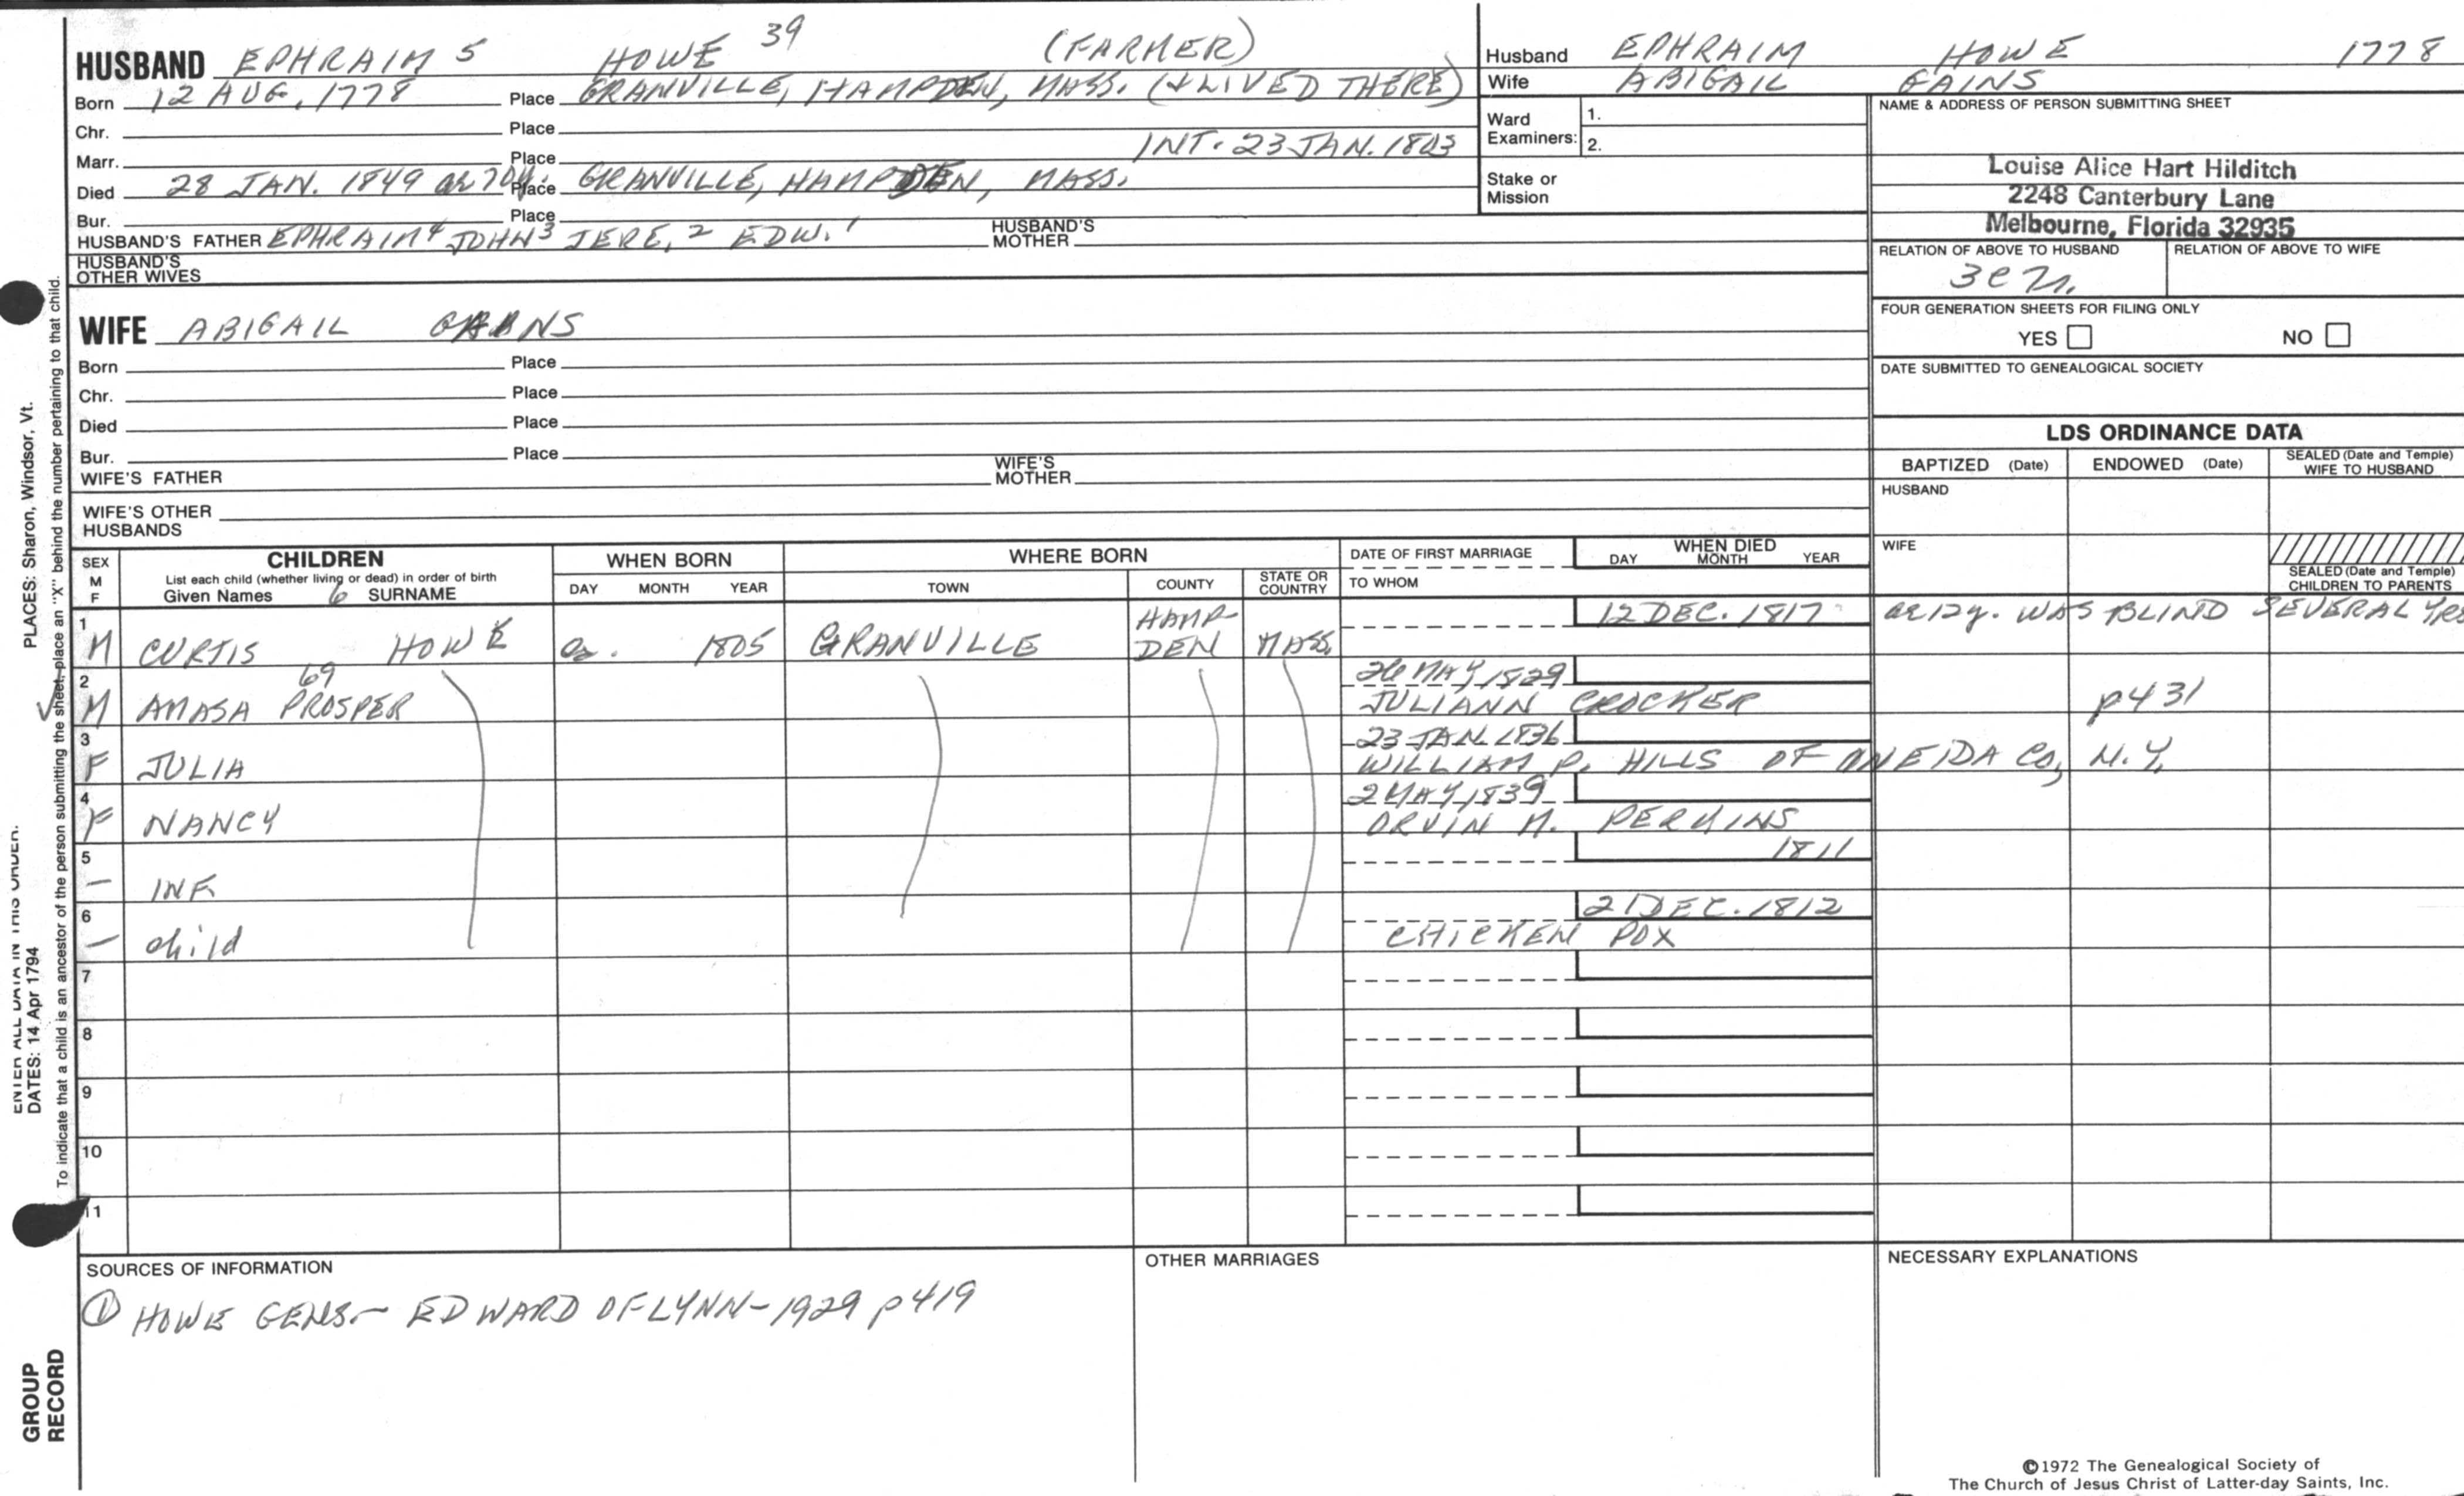 HUSBAND EPHRAIM 5 HOWE 39 (FARMER)
Born 12 AUG. 1778 Place GRANVILLE, HAMPDEN, MASS. (& LIVED THERE)
Chr. Place
Marr. Place INT. 23 JAN. 1803
Died 28 JAN. 1849 ae 70y. Place GRANVILLE, HAMPDEN, MASS.
Bur. Place
HUSBAND'S FATHER EPHRAIM 4 JOHN 3 JERE, 2 EDW. 1 HUSBAND'S MOTHER
HUSBAND'S OTHER WIVES
Husband EPHRAIM HOWE 1778
Wife ABIGAIL GAINS
Ward Examiners: 1.
2.
Stake or Mission
NAME & ADDRESS OF PERSON SUBMITTING SHEET
Louise Alice Hart Hilditch
2248 Canterbury Lane
Melbourne, Florida 32935
RELATION OF ABOVE TO HUSBAND RELATION OF ABOVE TO WIFE
FOUR GENERATION SHEETS FOR FILING ONLY
YES NO
DATE SUBMITTED TO GENEALOGICAL SOCIETY
WIFE ABIGAIL
Born Place
Chr. Place
Died Place
Bur. Place
WIFE'S FATHER WIFE'S MOTHER
WIFE'S OTHER HUSBANDS
LDS ORDINANCE DATA
BAPTIZED (Date) ENDOWED (Date) SEALED (Date and Temple) WIFE TO HUSBAND
HUSBAND
WIFE
SEALED (Date and Temple) CHILDREN TO PARENTS
SEX M F
CHILDREN
List each child (whether living or dead) in order of birth
Given Names 6 SURNAME
WHEN BORN
DAY MONTH YEAR
WHERE BORN
TOWN COUNTY STATE OR COUNTRY
DATE OF FIRST MARRIAGE
TO WHOM
WHEN DIED
DAY MONTH YEAR
1 12 DEC. 1817 ae 12y. WAS BLIND SEVERAL YRS
M CURTIS HOWE 1805 GRANVILLE HAMPDEN MASS.
2 69 26 MAY 1829
M AMASA PROSPER JULIANN CROCKER p431
3 23 JAN. 1836
F JULIA WILLIAM P. HILLS OF ONEIDA CO, N.Y.
4 2 MAY 1839
F NANCY ORVIN M. PERKINS
5 1811
— INF.
6 21 DEC. 1812
— child CHICKEN POX
7
8
9
10
11
SOURCES OF INFORMATION
① HOWE GENS.— EDWARD OF LYNN—1929 p419
OTHER MARRIAGES
NECESSARY EXPLANATIONS
©1972 The Genealogical Society of
The Church of Jesus Christ of Latter-day Saints, Inc.
ENTER ALL DATA IN THIS ORDER:
PLACES: Sharon, Windsor, Vt.
DATES: 14 Apr 1794
To indicate that a child is an ancestor of the person submitting the sheet, place an "X" behind the number pertaining to that child.
GROUP
RECORD